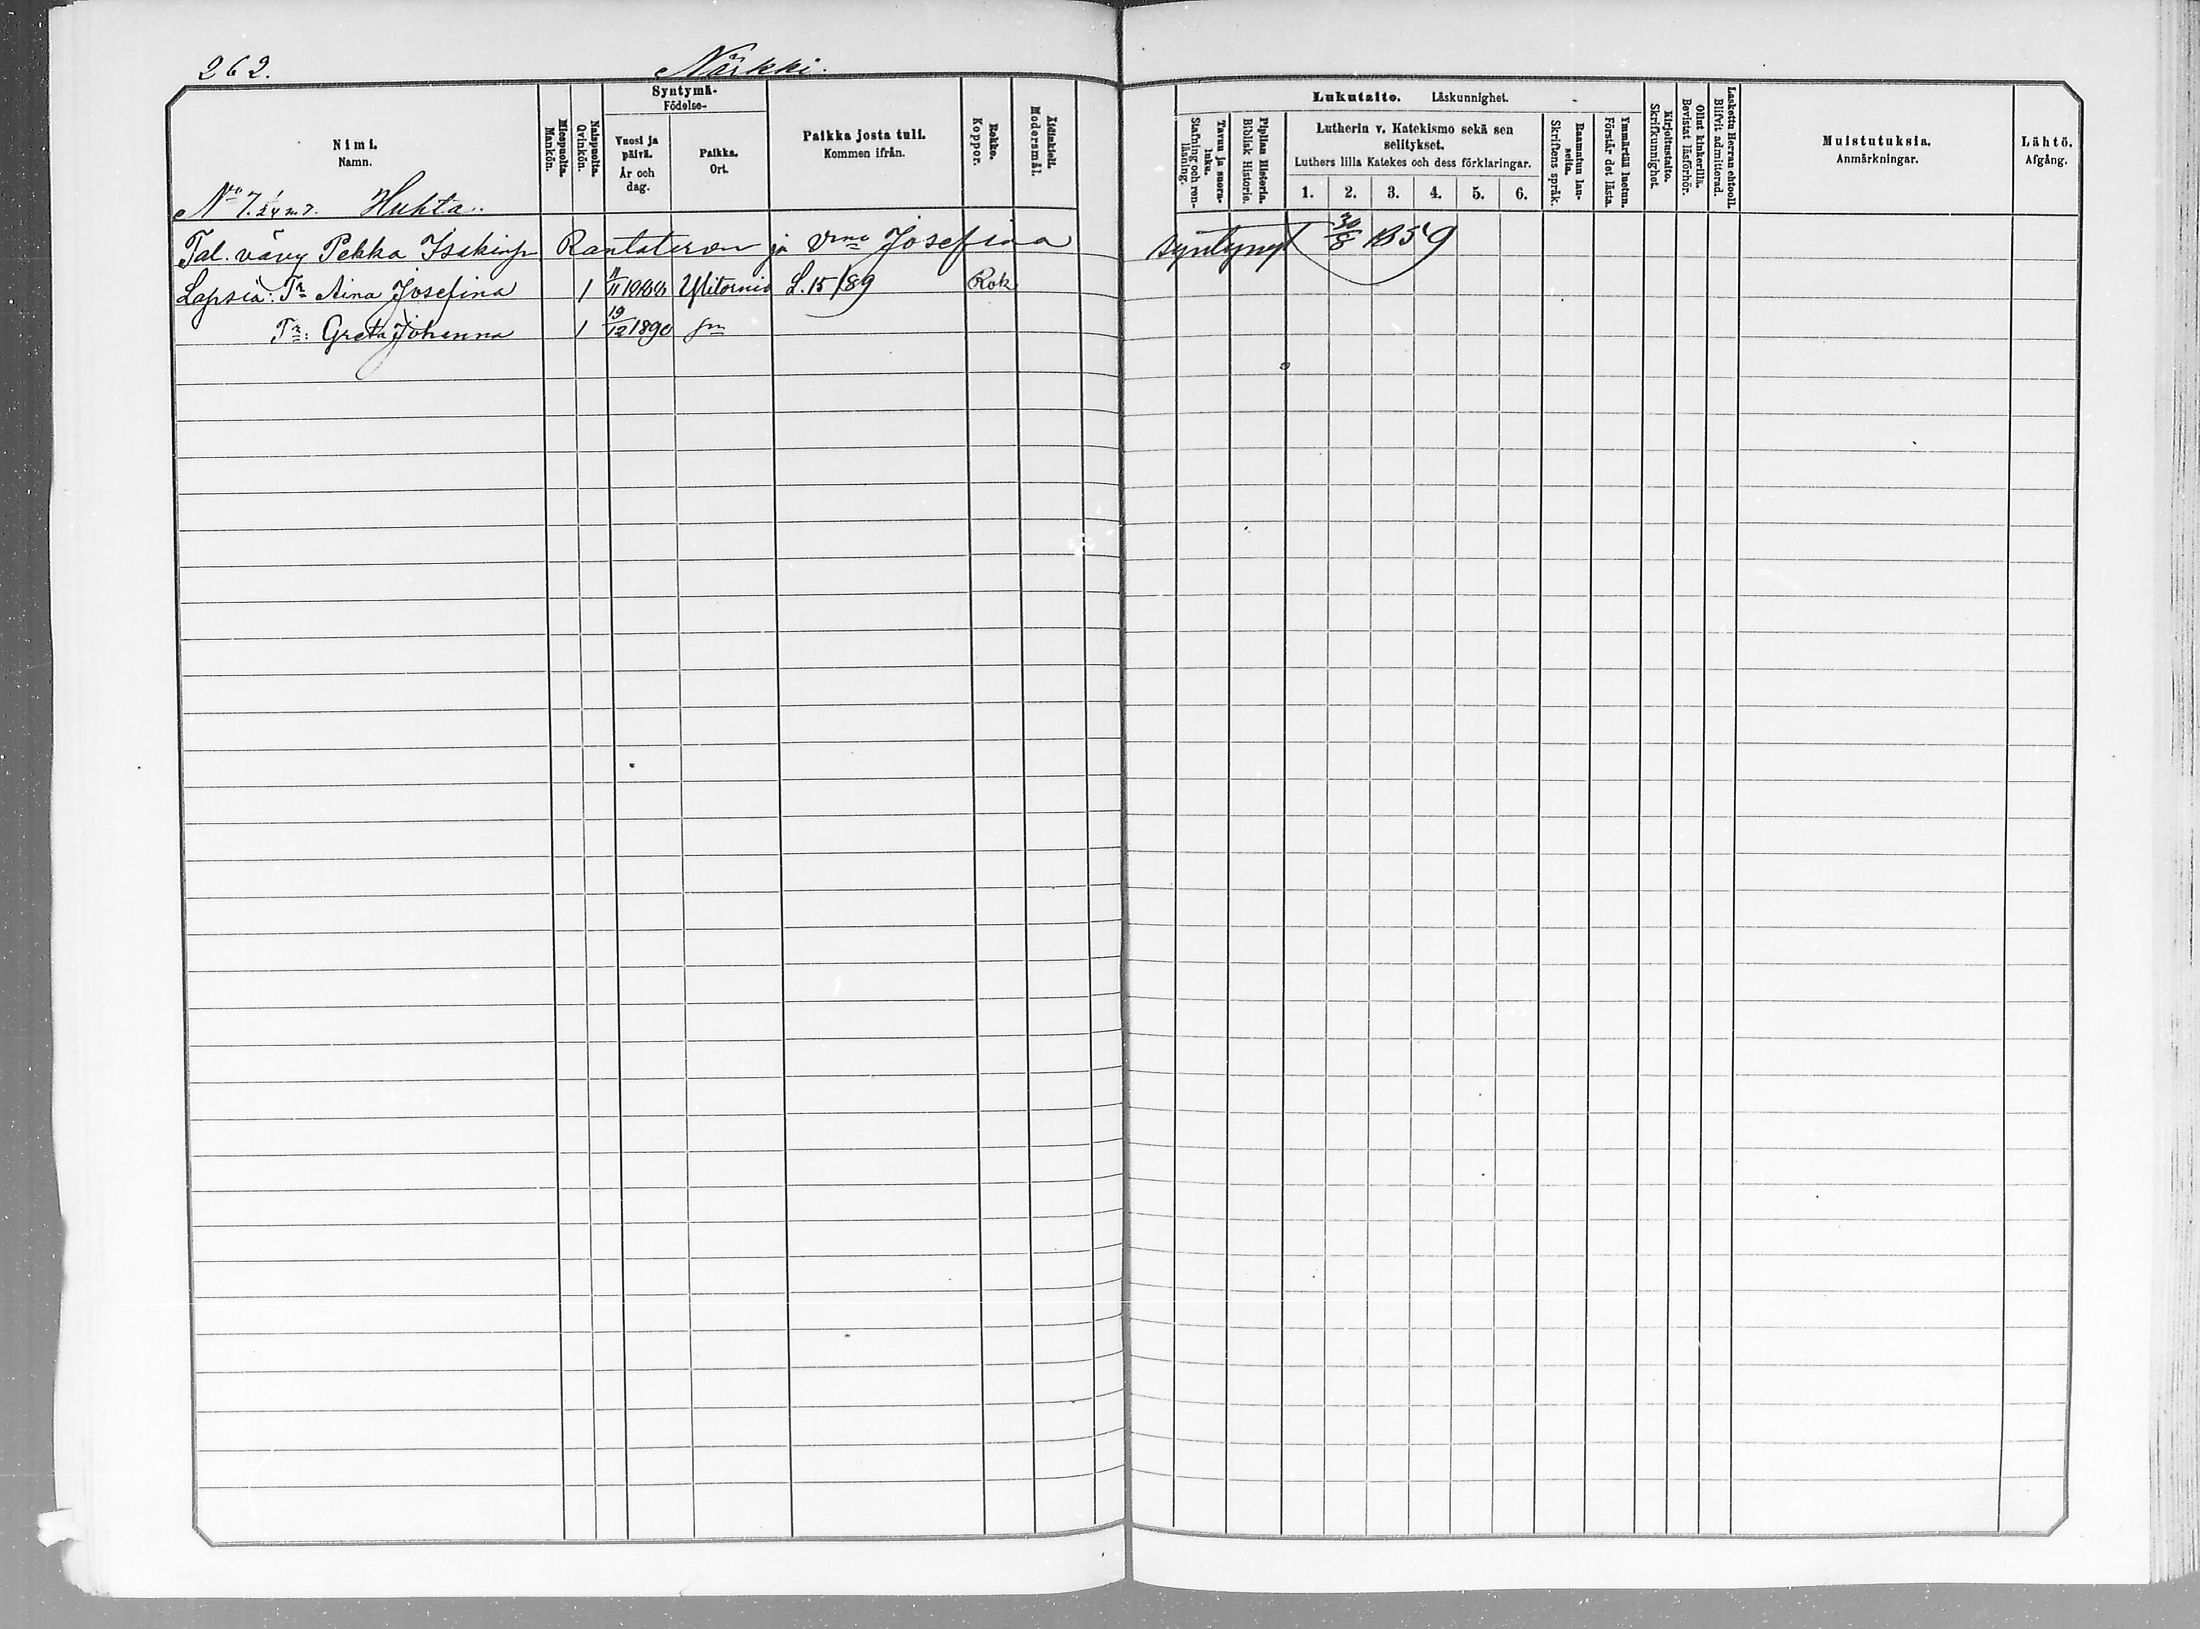 262. Närkki.
Nimi.
Namn.
Miespuolia.
Mankön.
Naispuolia.
Qvinkön.
Syntymä-
Födelse-
Vuosi ja
päivä.
År och
dag.
Paikka.
Ort.
Paikka josta tuli.
Kommen ifrån.
Rokko.
Koppor.
Äidinkieli.
Modersmål.
Lukutaito. Läskunnighet.
Tavuu ja suora-
luku.
Stafning och ren-
läsning.
Piplian Historia.
Biblisk Historie.
Lutherin v. Katekismo sekä sen
selitykset.
Luthers lilla Katekes och dess förklaringar.
1. 2. 3. 4. 5. 6.
Raamatun lau-
seita.
Skriftens språk.
Ymmärtää luetun.
Förstår det lästa.
Kirjoitustaito.
Skrifkunnighet.
Ollut kinkerillä.
Bevistat läsförhör.
Laskettu Herran ehtooll.
Blifvit admitterad.
Muistutuksia.
Anmärkningar.
Lähtö.
Afgång.
No 7. Huhta.
Tal. vävy Pekka Rantatoron ja vmo Josefiina syntynyt 30/8 1859
Lapsia: Tr Aina Josefina 1 Ylitornio L. 15/89 Rok
Tr: Greta Johanna 1 19/12 1890 sm